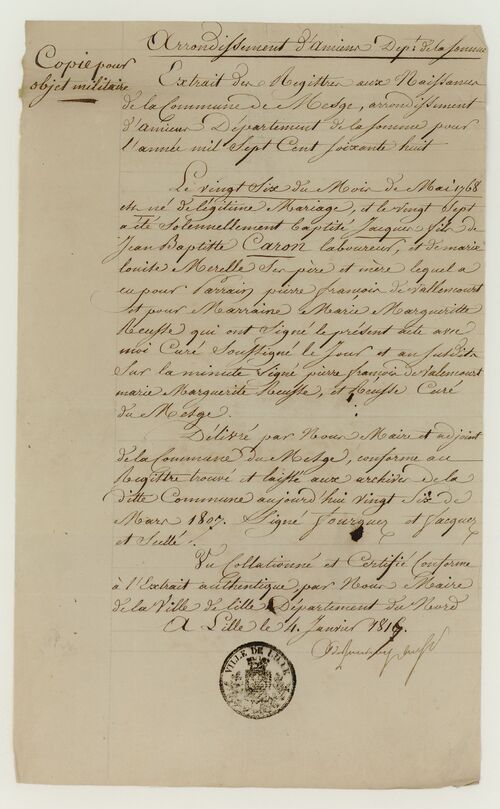 Arrondissement d'amiens Dep.t de la somme
Copie pour
objet militaire
Extrait des Registres aux Naissances
de la Commune de Mesge, arrondissement
d'amiens Département de la somme pour
l'année mil Sept Cent soixante huit
Le vingt Six du Mois de Mai 1768
est né de légitime Mariage, et le vingt Sept
a été Solennellement baptisé Jacques fils de
Jean Baptiste Caron laboureur, et de marie
louise Merelle Ses père et mère lequel a
eu pour Parrain pierre françois de Vallencourt
et pour Marraine Marie Margueritte
Reusse qui ont Signé le présent acte avec
moi Curé Soussigné le Jour et an susdits
Sur la minute Signé pierre françois de Valencourt
marie Marguerite Reusse, et Reusse Curé
du Mesge.
Délivré par Nous Maire et adjoint
de la Commune du Mesge, conforme au
Registre trouvé et laissé aux archives de la
ditte Commune aujourd'hui vingt Six de
Mars 1807. Signé fourquez et Jacquez
et Scellé.
Vu Collationné et Certifié Conforme
à l'Extrait authentique par Nous Maire
de la Ville de lille Département du Nord
A Lille le 4. Janvier 1816.
VILLE DE LILLE